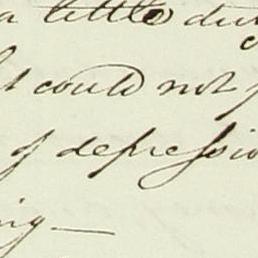 a little du
t could not
of depressio
ing —